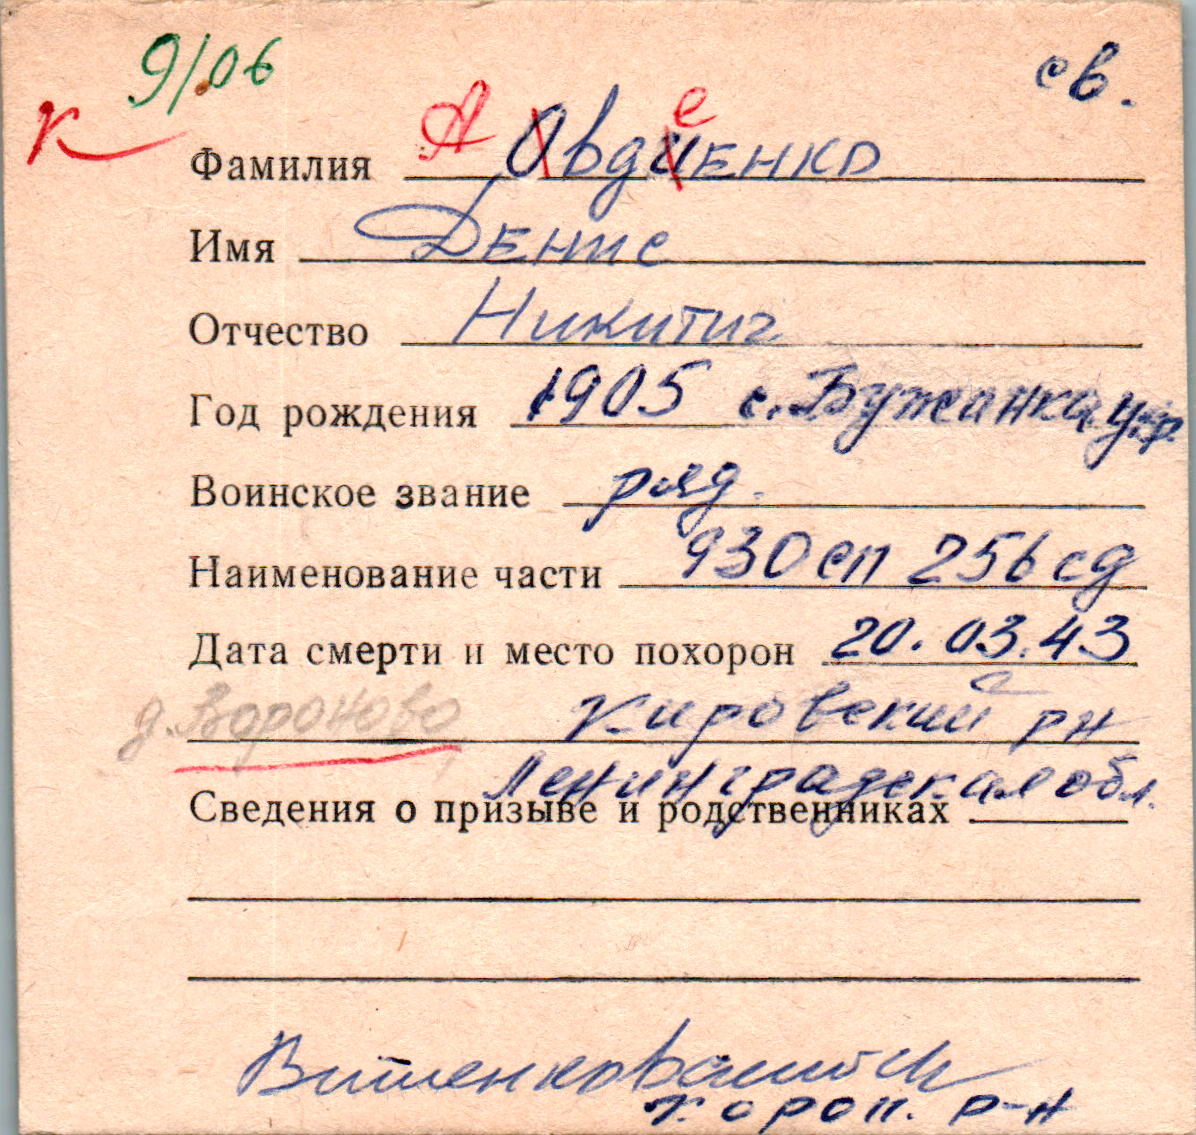 9/06
св.
К
А е
Фамилия Овдиенко
Имя Денис
Отчество Никитич
Год рождения 1905 с. Бужанка укр.
Воинское звание ряд.
Наименование части 930 сп 256 сд
Дата смерти и место похорон 20.03.43
д. Вороново Кировский рн
Ленинградская обл.
Сведения о призыве и родственниках
хорол. р-н